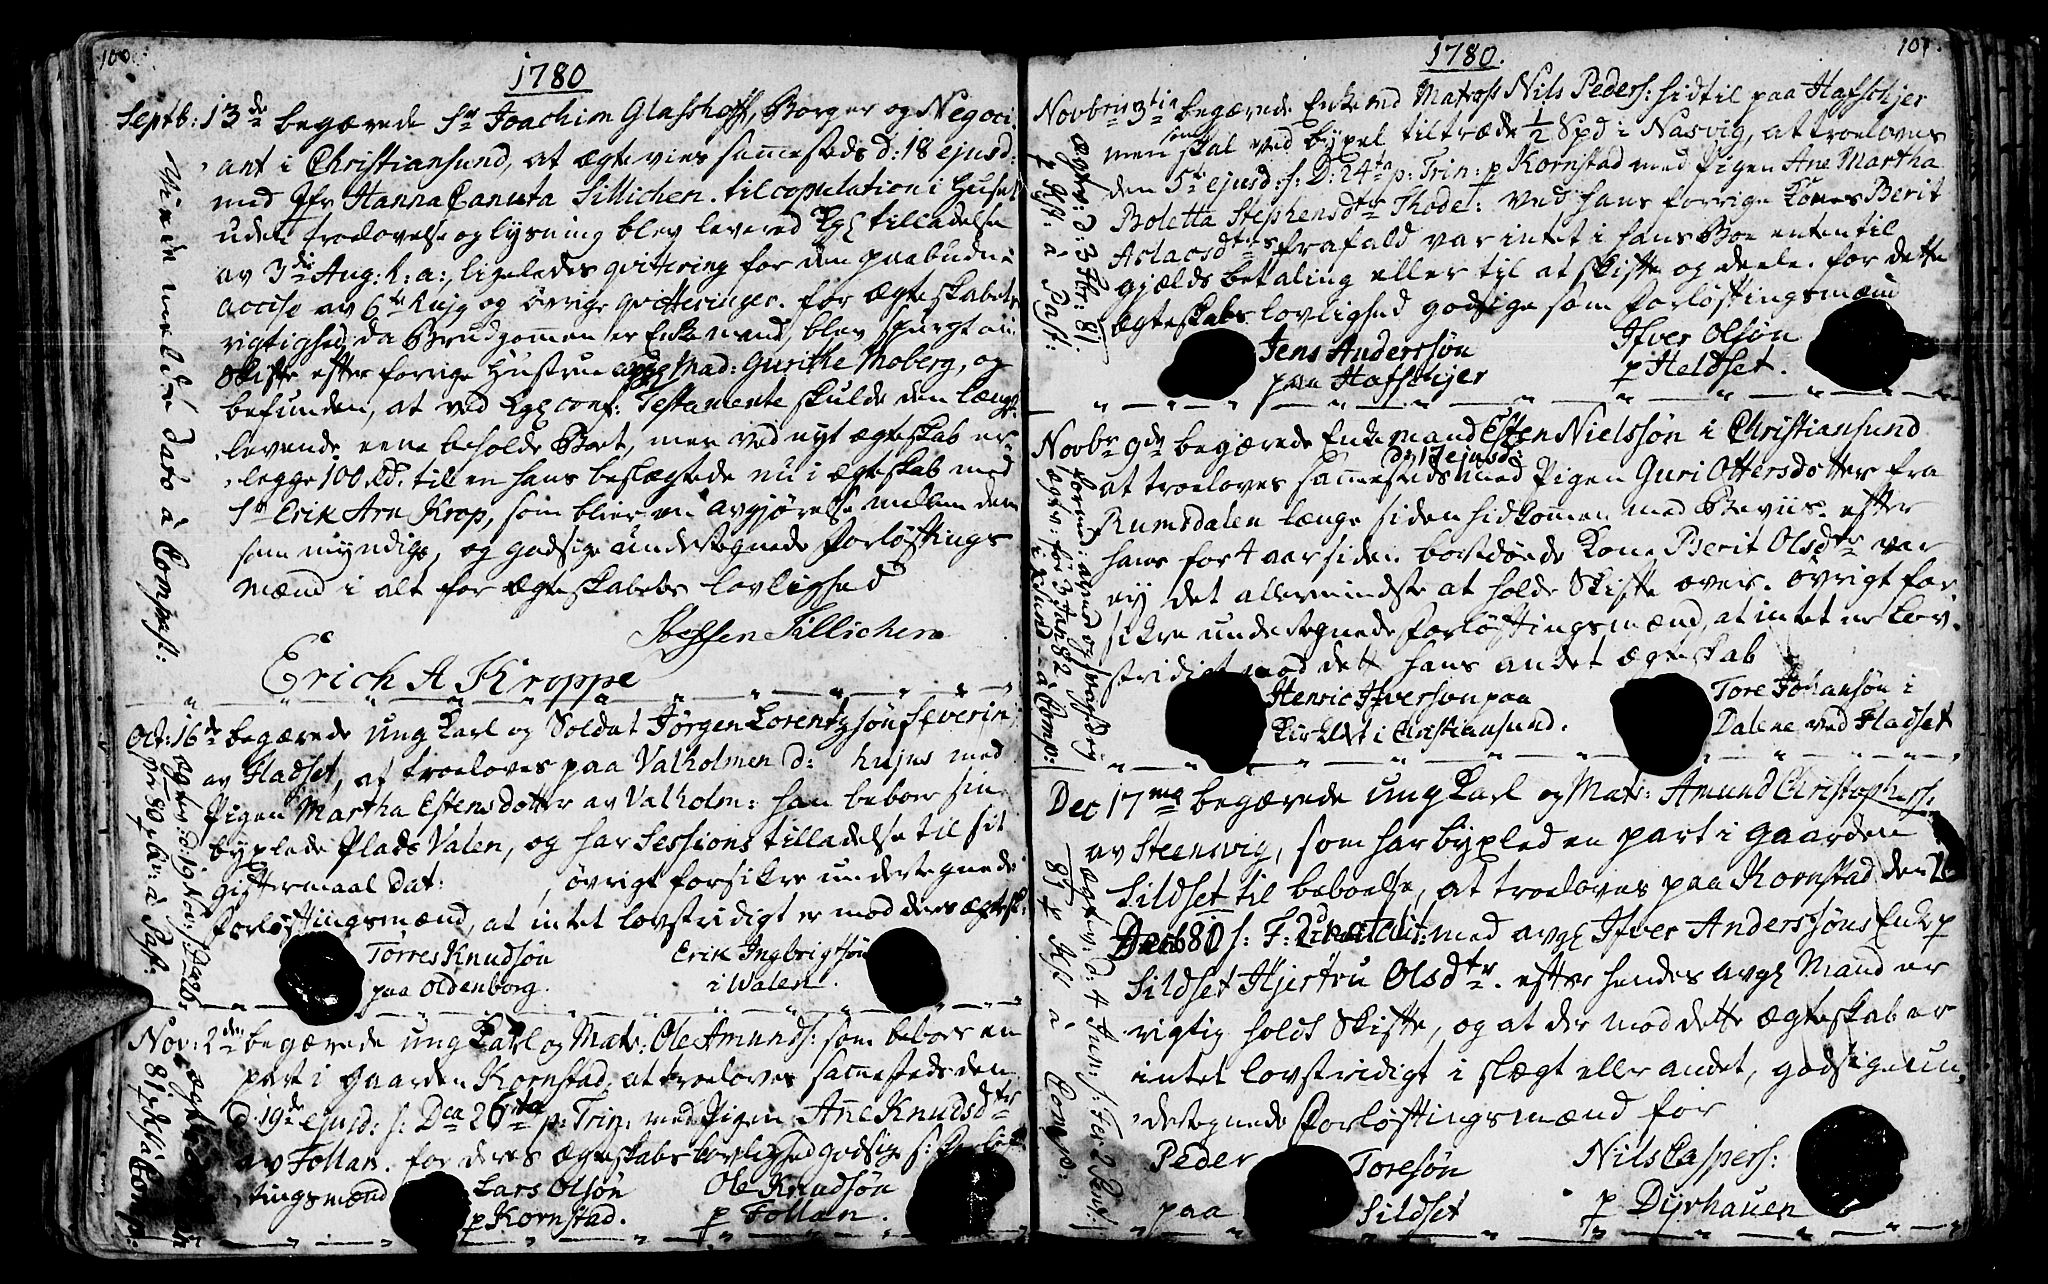 100.
1780
Septb: 13de begærede Sr Joachim Glasshoff, Borger og Negoci¬
ant i Christiansund, at ægtevies sammesteds d: 18 ejusd:
med Jfr Hanna Canuta Sillichen. til copulation i Huset
uden troelovelse og lysning blev levered Kgl tilladelse
av 3die Aug: h: a:, ligeledes qvittering for den paabudne
accise av 6te hujg og övrige qvitteringer. for Ægteskabets
rigtighed, da Brudgommen er Enkemand, blev spurgt om
Skifte efter forrige Hustrue Mad: Gurithe Moberg, og
befunden, at ved Kgl conf: Testamente skulde den længst
levende eene beholde Boet, men ved nyt ægteskab er¬
legge 100 Rd. til en hans beslægtede nu i ægteskab med
Sr Erik Arn Krop, som blier en avgjörelse mellem dem
som myndige, og godsige undertegnede Forlöftings
mænd i alt for Ægteskabets lovlighed
Steffen Sillichen
Erich A Kroppe
Viede melden dato à Consist:
Oct: 16de begærede Ung Karl og Soldat Jörgen Lorentzsön Severin
av Stadset, at troeloves paa Valholmen d: hujus med
Pigen Martha Estensdotter av Valholm: han beboer sin
byxlede Plads Valen, og har Sessions tilladelse til sit
giftermaal dat: , övrigt forsikre undertegnede
Forlöftingsmænd, at intet lovstridigt er mod deres ægtesk:
Torres Knudsön
paa Oldenborg.
Erik Ingbrigtsön
i Walen.
Nov: 2den begærede ung Karl og Mats: Ole Amunds: som beboer en
part i gaarden Kornstad, at troeloves sammesteds den
d: 19de ejusd: s: Dca 26ta p: Trin: med Pigen Ane Knudsdtr
av Follan. for deres Ægteskabs lovlighed godsige s: Forlöf¬
tingsmænd
Lars Olsön
p Kornstad.
Ole Knudsön
p Follan.
101.
1780.
Novbr 3tia begærede Enkemd Matros Nils Peders: hidtil paa Hafskjer
men som skal ved byxel tiltræde 1/2 Spd i Nasvig, at troeloves
den 5te ejusd: s: D: 24ta p: Trin: p Kornstad med Pigen Ane Martha
Boletta Stephensdtr Thode: ved hans forrige Kones Berit
Aslacsdtrs frafald var intet i hans Boe enten til
gjælds betaling eller til at skifte og deele. for dette
Ægteskabs lovlighed godsige som forlöftingsmænd
Jens Anderssön
paa Hafskjer
Ifver Olsön
p Heldset.
Novbr 9de begærede Enkemand Esten Nielssön i Christiansund
d: 17 ejusd:
at troeloves sammesteds med Pigen Guri Ottersdotter fra
Rumsdalen længe siden hidkommen med Beviis. efter
hans for 4 aar siden bortdöde Kone Berit Olsdtr var
ey det allermindste at holde Skifte over. övrigt for
sikre undertegnede Forlöftingsmænd, at intet er lov¬
stridigt mod dette hans andet ægteskab
Henric Ifverson paa
Kirkl: i Cristiansund.
Tore Johansön i
Dalene ved Stadset
Dec 17ma begærede ung Karl og Mats: Amund Christophers:
av Steensvig, som har byxled en part i gaarden
Sildset til beboelse, at troeloves paa Kornstad den 26
Decb 80 s: F: 2 natalit: med avgl Ifver Anderssöns Enke p
Sildset Hjertru Olsdtr. efter hendes avgl Mand er
rigtig holdt Skifte, og at der mod dette Ægteskab er
intet lovstridigt i slægt eller andet, godsige un¬
dertegnede Forlöftingsmænd for
Peder Toresön
paa Sildset
Nils Caspers:
p Dyrhauen